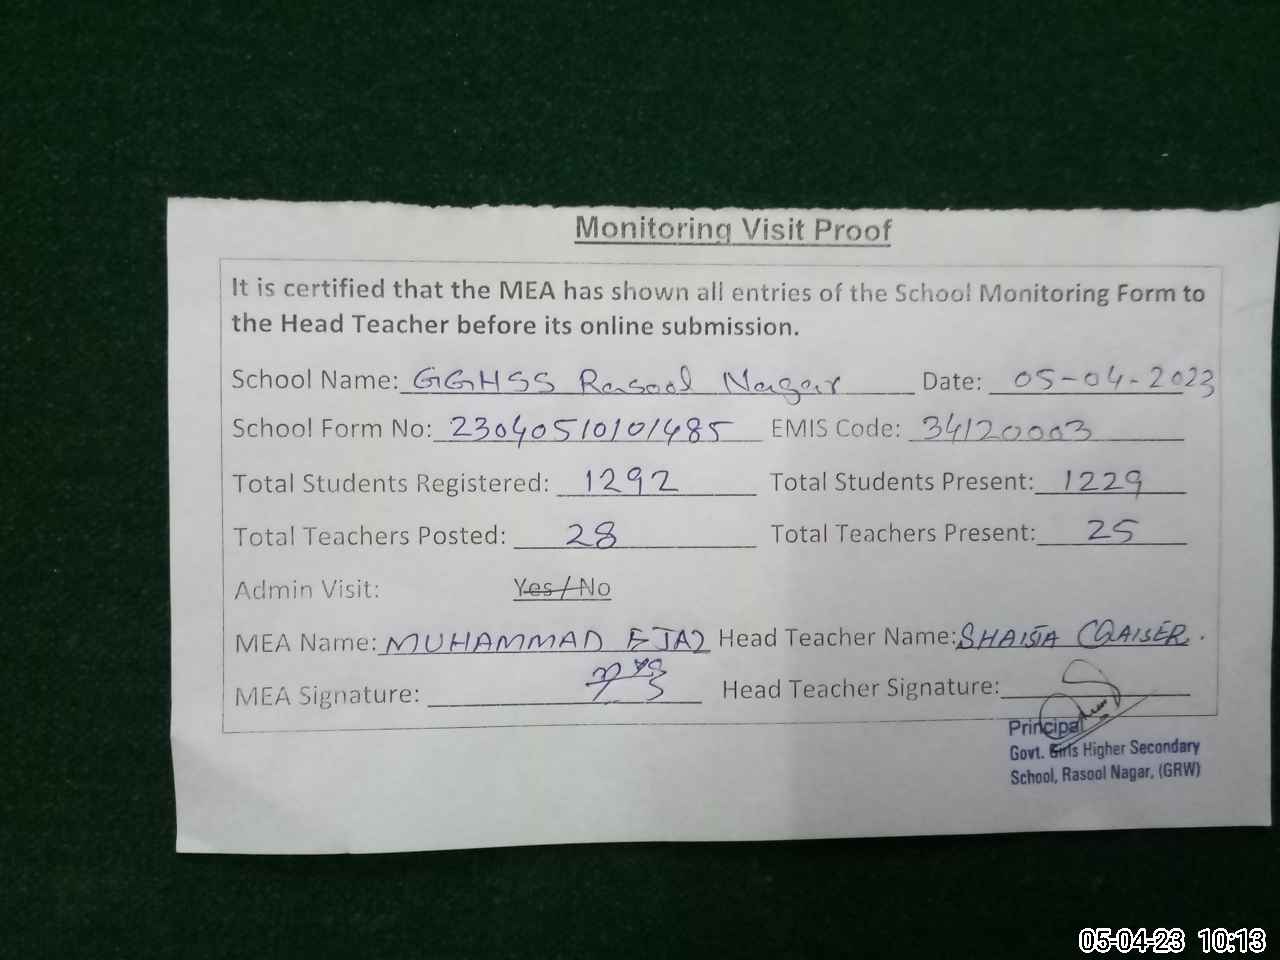 Monitoring Visit Proof
It is certified that the MEA has shown all entries of the School Monitoring Form to
the Head Teacher before its online submission.
School Name: GGHSS Rasool Nagar Date: 05-04-2023
School Form No: 23040510101485 EMIS Code: 34120003
Total Students Registered: 1292 Total Students Present: 1229
Total Teachers Posted: 28 Total Teachers Present: 25
Admin Visit: Yes / No
MEA Name: MUHAMMAD EJAZ Head Teacher Name: SHAISTA QAISER.
MEA Signature: Head Teacher Signature:
Principal
Govt. Girls Higher Secondary
School, Rasool Nagar, (GRW)
05-04-23 10:13